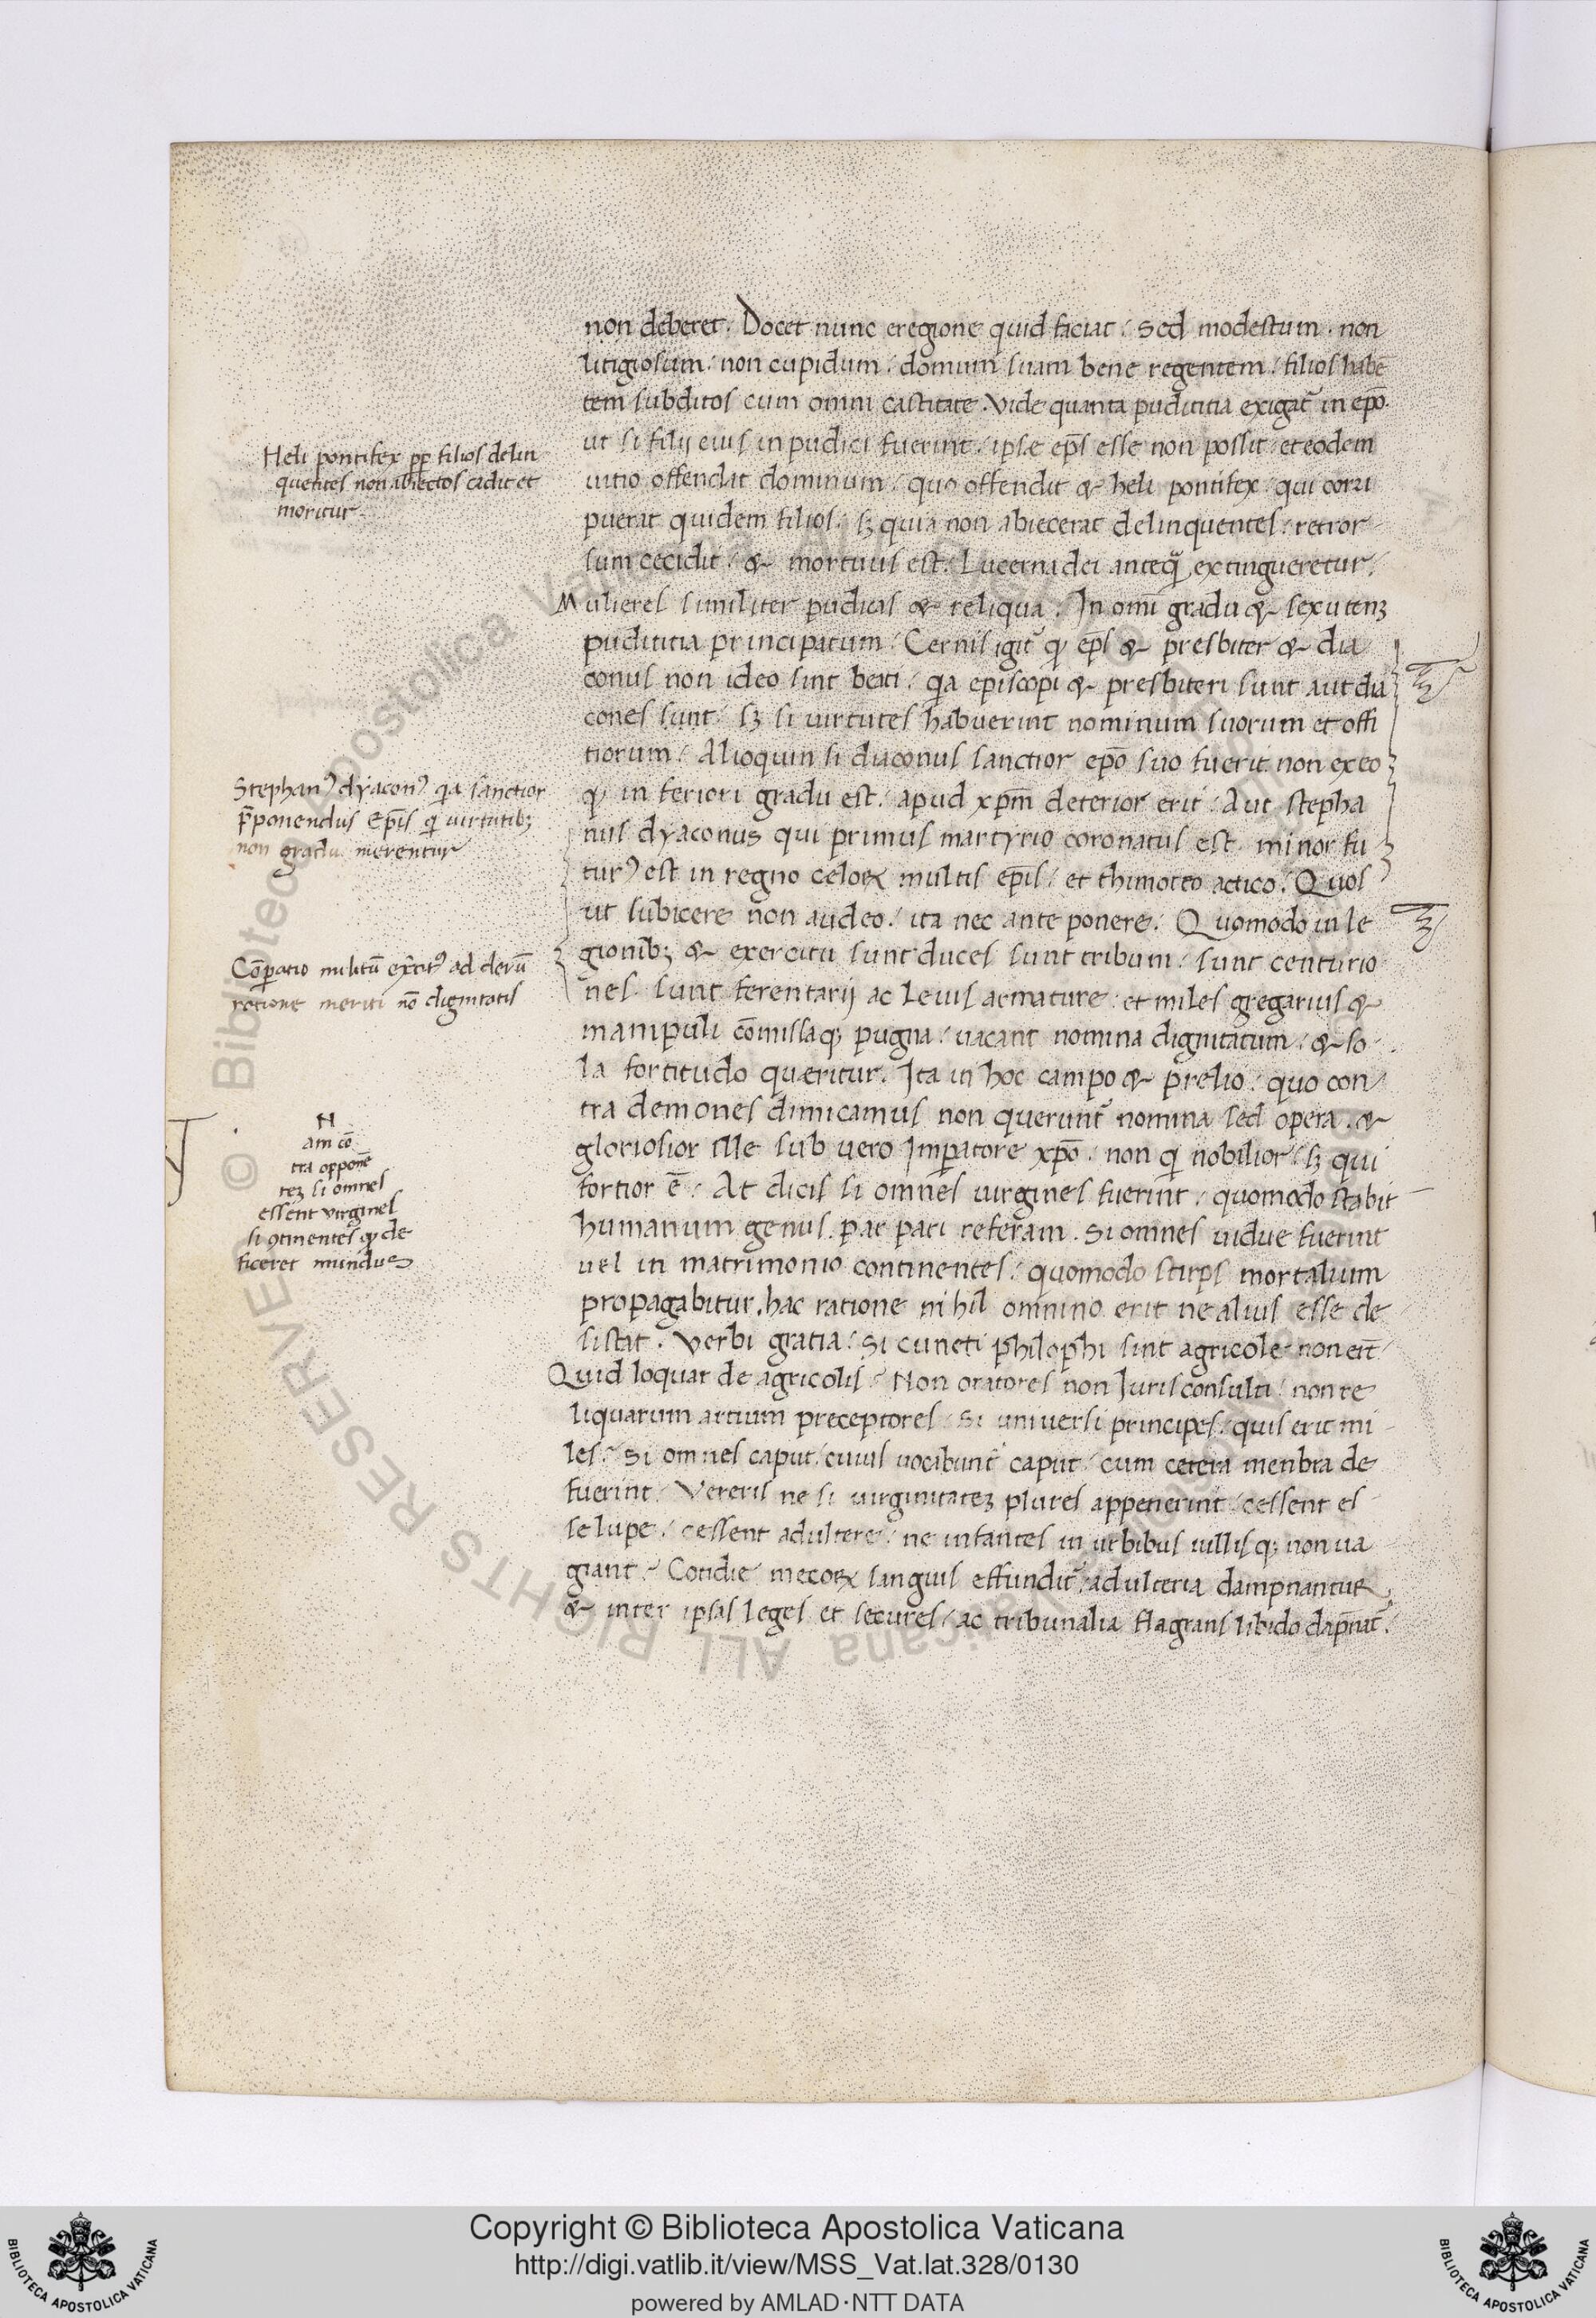 non deberet. Docet nunc eregione quid faciat. Sed modestum. non
litigiosum. non cupidum. domum suam bene regentem. filios habē
tem subditos cum omni castitate. Vide quanta pudititia exigat̃ in ep̄o.
ut si filij eius inpudici fuerint. ipse ep̄s esse non possit. et eodem
uitio offendat dominum. quo offendit & heli pontifex. qui corri
puerat quidem filios. sꝫ quia non abiecerat delinquentes. retror
sum cecidit. & mortuus est. Lucerna dei anteq̃ extingueretur.
Mulieres similiter pudicas & reliqua. In omī gradu & sexu tenꝫ
pudititia principatum. Cernis igit̃ ꝙ ep̄s & presbiter & dia
conus non ideo sint beati. qa episcopi & presbiteri sunt aut dia
cones sunt. sꝫ si uirtutes habuerint nominum suorum et offi
tiorum. Alioquin si diaconus sanctior ep̄o suo fuerit. non ex eo
ꝙ inferiori gradu est. apud xp̄m deterior erit. Aut stepha
nus dyaconus qui primus martyrio coronatus est. minor fu
turꝰ est in regno celoꝝ multis ep̄is. et thimoteo actico. Quos
ut subicere non audeo. ita nec ante ponere. Quomodo in le
gionibꝫ & exercitu sunt duces sunt tribuni. sunt centurio
nes. sunt ferentarij ac leuis armature. et miles gregarius &
manipuli cōmissaqꝫ pugna. uacant nomina dignitatum. & so
la fortitudo queritur. Ita in hoc campo & prelio. quo con
tra demones dimicamus non querunt̃ nomina sed opera. &
gloriosior ille sub uero Imperatore xp̄o. non q nobilior. sꝫ qui
fortior ē. At dicis si omnes uirgines fuerint. quomodo stabit
humanum genus. par pari referam. Si omnes uidue fuerint
uel in matrimonio continentes. quomodo stirps mortalium
propagabitur. hac ratione nihil omnino erit ne alius esse de
sistat. Verbi gratia. Si cuncti philophi sint agricole non eīt
Quid loquar de agricolis. Non oratores non Juris consulti. non re
liquarum artium preceptores. Si uniuersi principes. quis erit mi
les. Si omnes caput. cuius uocabunt̃ caput. cum cetera menbra de
fuerint. Vereris ne si uirginitateꝫ plures appetierint. cessent es
se lupe. cessent adultere. ne infantes in urbibus uillisqꝫ non ua
giant. Cotidie mecoꝝ sanguis effundit̃. adulteria dampnantur
& inter ipsas leges et secures. ac tribunalia flagrans libido dap̄nat̃.
Heli pontifex pp filios delin
quentes non abiectos cadit et
moritur
Stephanꝰ dyaconꝰ qa sanctior
p̄ponendus Ep̄is q uirtutibꝫ
non gradu merentur
Cōparatio militū exercitꝰ ad clerū
ratione meriti nō dignitatis
N
am cō
tra opponē
teꝫ si omnes
essent virgines
si ꝯtinentes ꝙ de
ficeret mundus
Copyright © Biblioteca Apostolica Vaticana
http://digi.vatlib.it/view/MSS_Vat.lat.328/0130
powered by AMLAD·NTT DATA
BIBLIOTECA APOSTOLICA VATICANA
BIBLIOTECA APOSTOLICA VATICANA